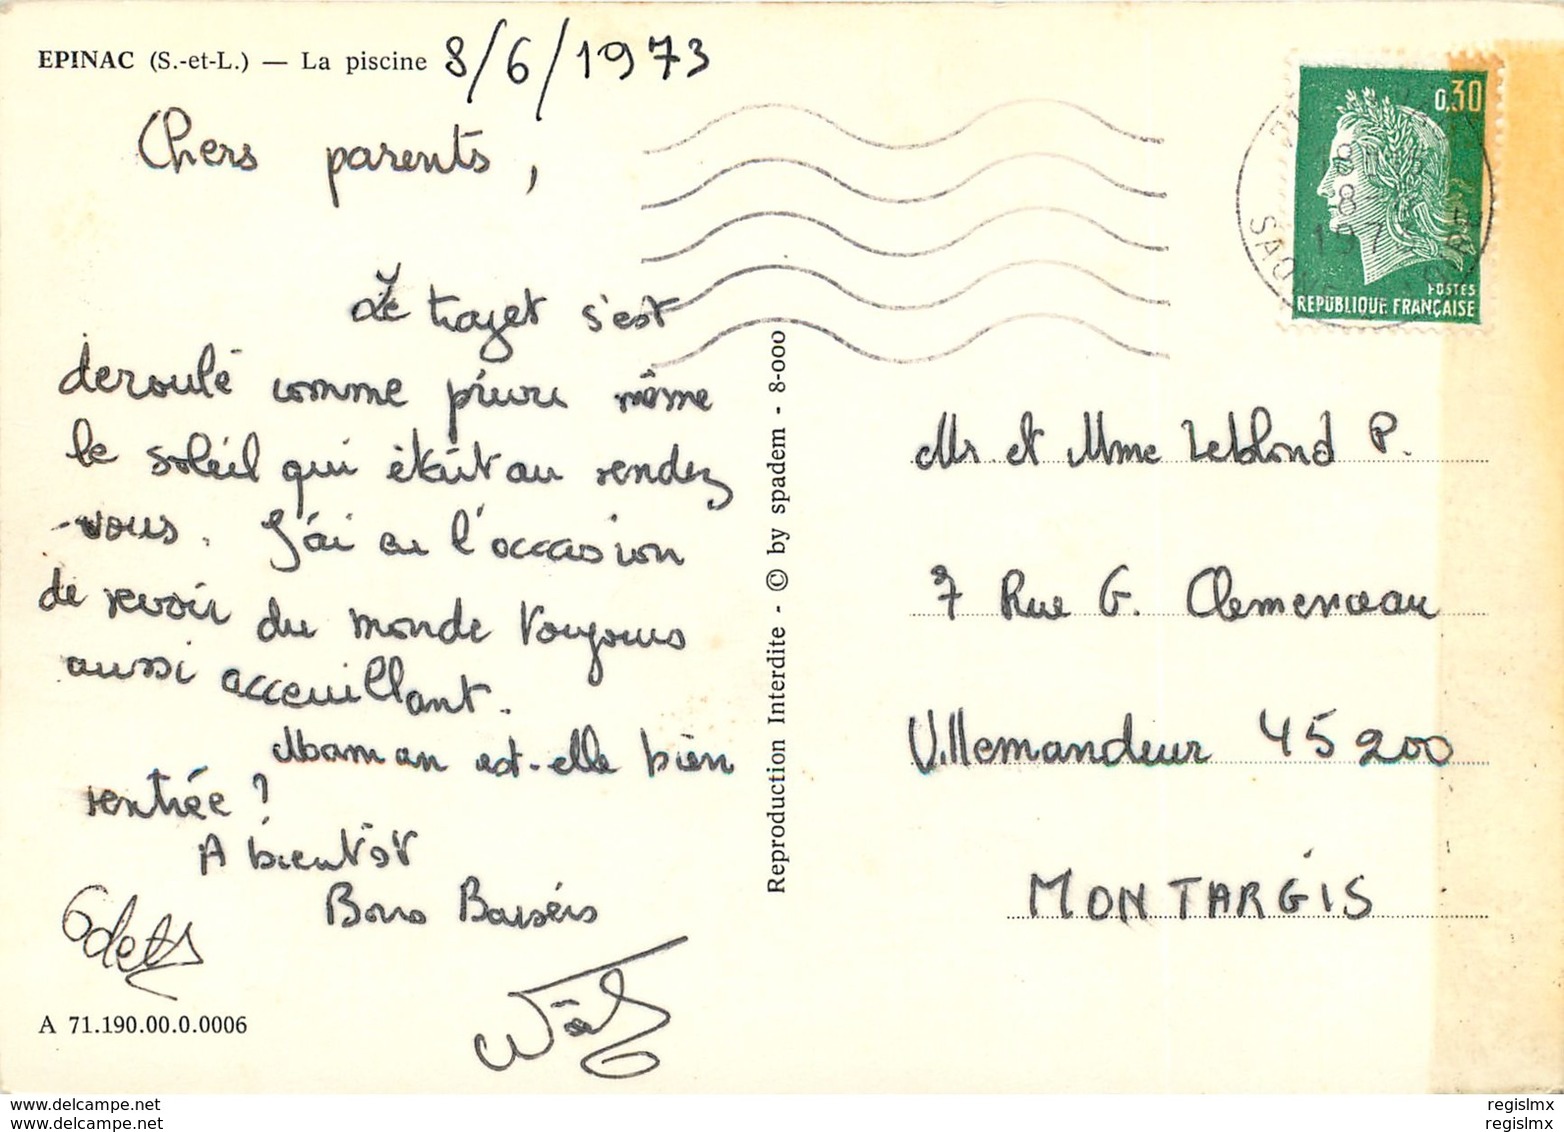 EPINAC (S.-et-L.) — La piscine 8/6/1973
Chers parents,
Le trajet s'est
deroulé comme prévu même
le soleil qui était au rendez
-vous. J'ai eu l'occasion
de revoir du monde toujours
aussi acceuillant.
Maman est-elle bien
rentrée ?
A bientôt
Bons Baisers
Odette
Noël
A 71.190.00.0.0006
Reproduction Interdite - © by spadem - 8-000
0,30
8 - 6
1973
SAONE
POSTES
REPUBLIQUE FRANÇAISE
Mr et Mme Leblond P.
7 Rue G. Clemenceau
Villemandeur 45200
MONTARGIS
www.delcampe.net
www.delcampe.net
regislmx
regislmx